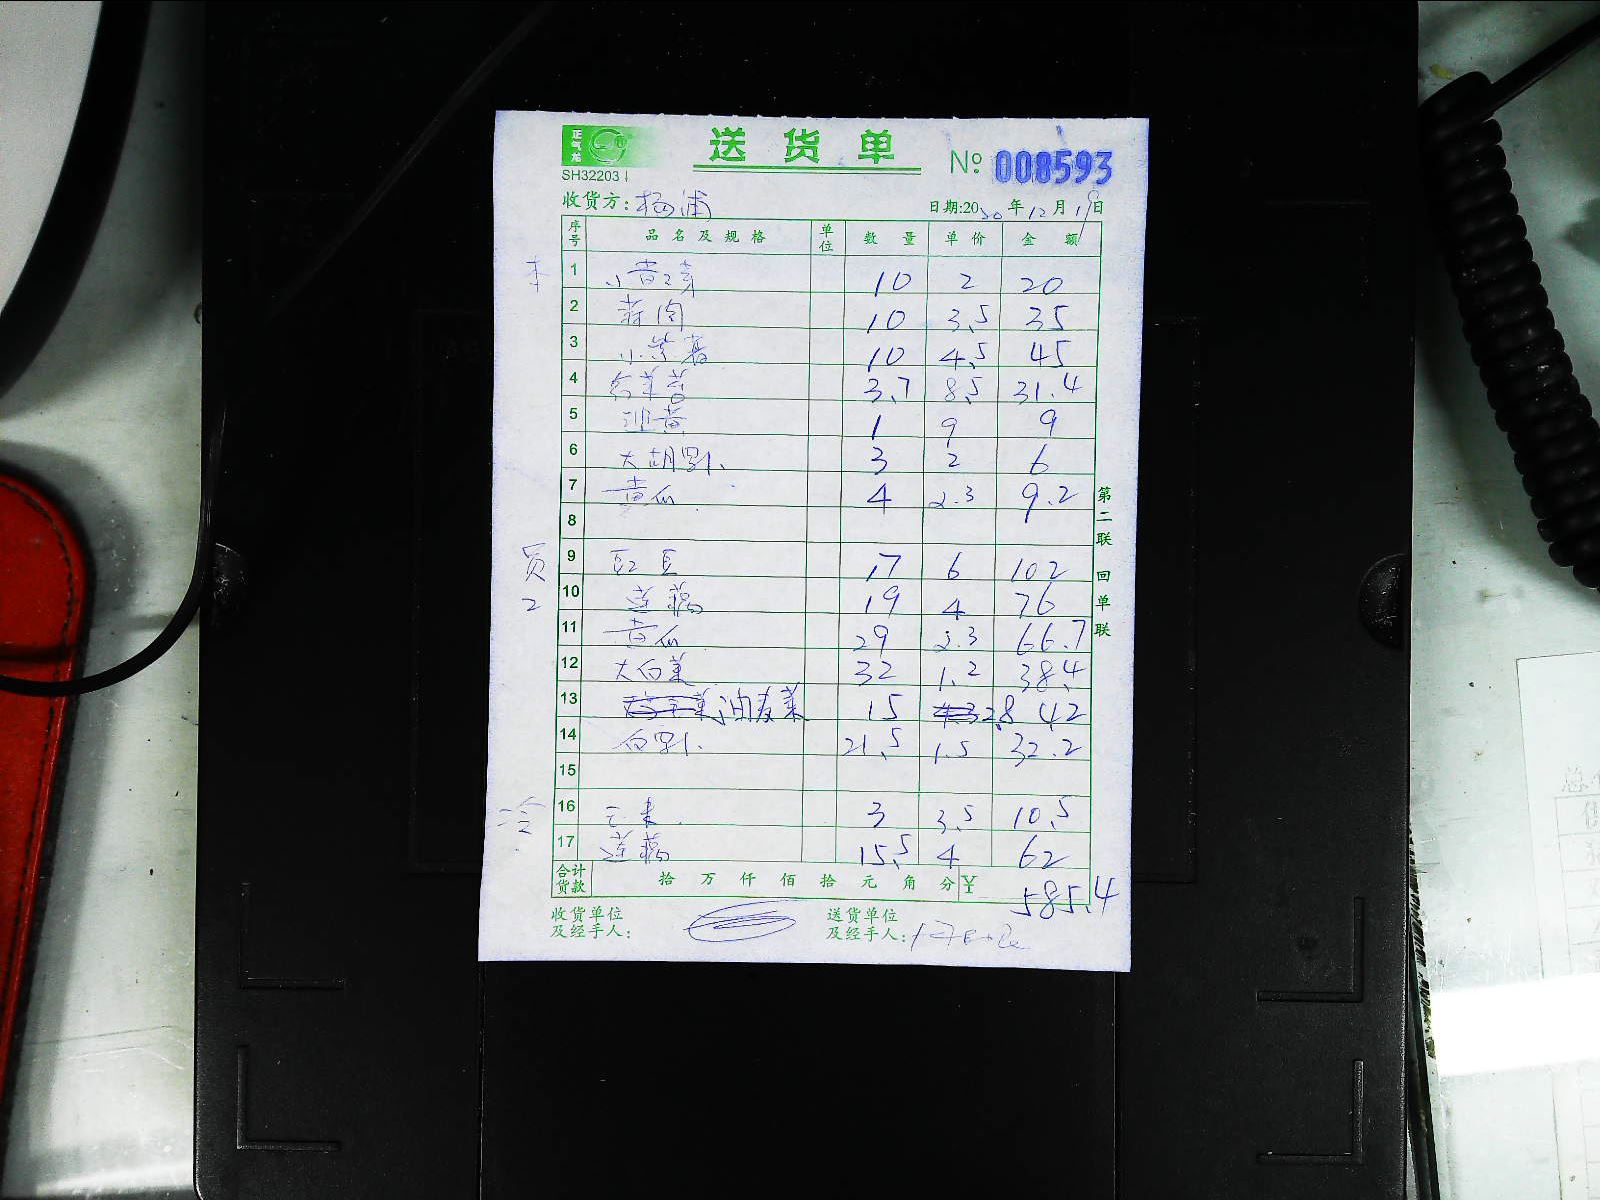 正气龙
送 货 单
No: 008593
SH32203
收货方: 杨浦 日期:2020年12月19日
序号 品名及规格 单位 数量 单价 金额
1 10 2 20
2 蒜肉 10 3.5 35
3 小紫薯 10 4.5 45
4 3.7 8.5 31.4
5 1 9 9
6 大胡罗卜 3 2 6
7 黄瓜 4 2.3 9.2
8
9 豇豆 17 6 102
10 19 4 76
11 黄瓜 29 2.3 66.7
12 大白菜 32 1.2 38.4
13 油麦菜 15 2.8 42
14 白罗卜 21.5 1.5 32.2
15
16 3 3.5 10.5
17 15.5 4 62
合计货款 拾 万 仟 佰 拾 元 角 分 ¥ 585.4
收货单位及经手人: 送货单位及经手人:
第二联 回单联